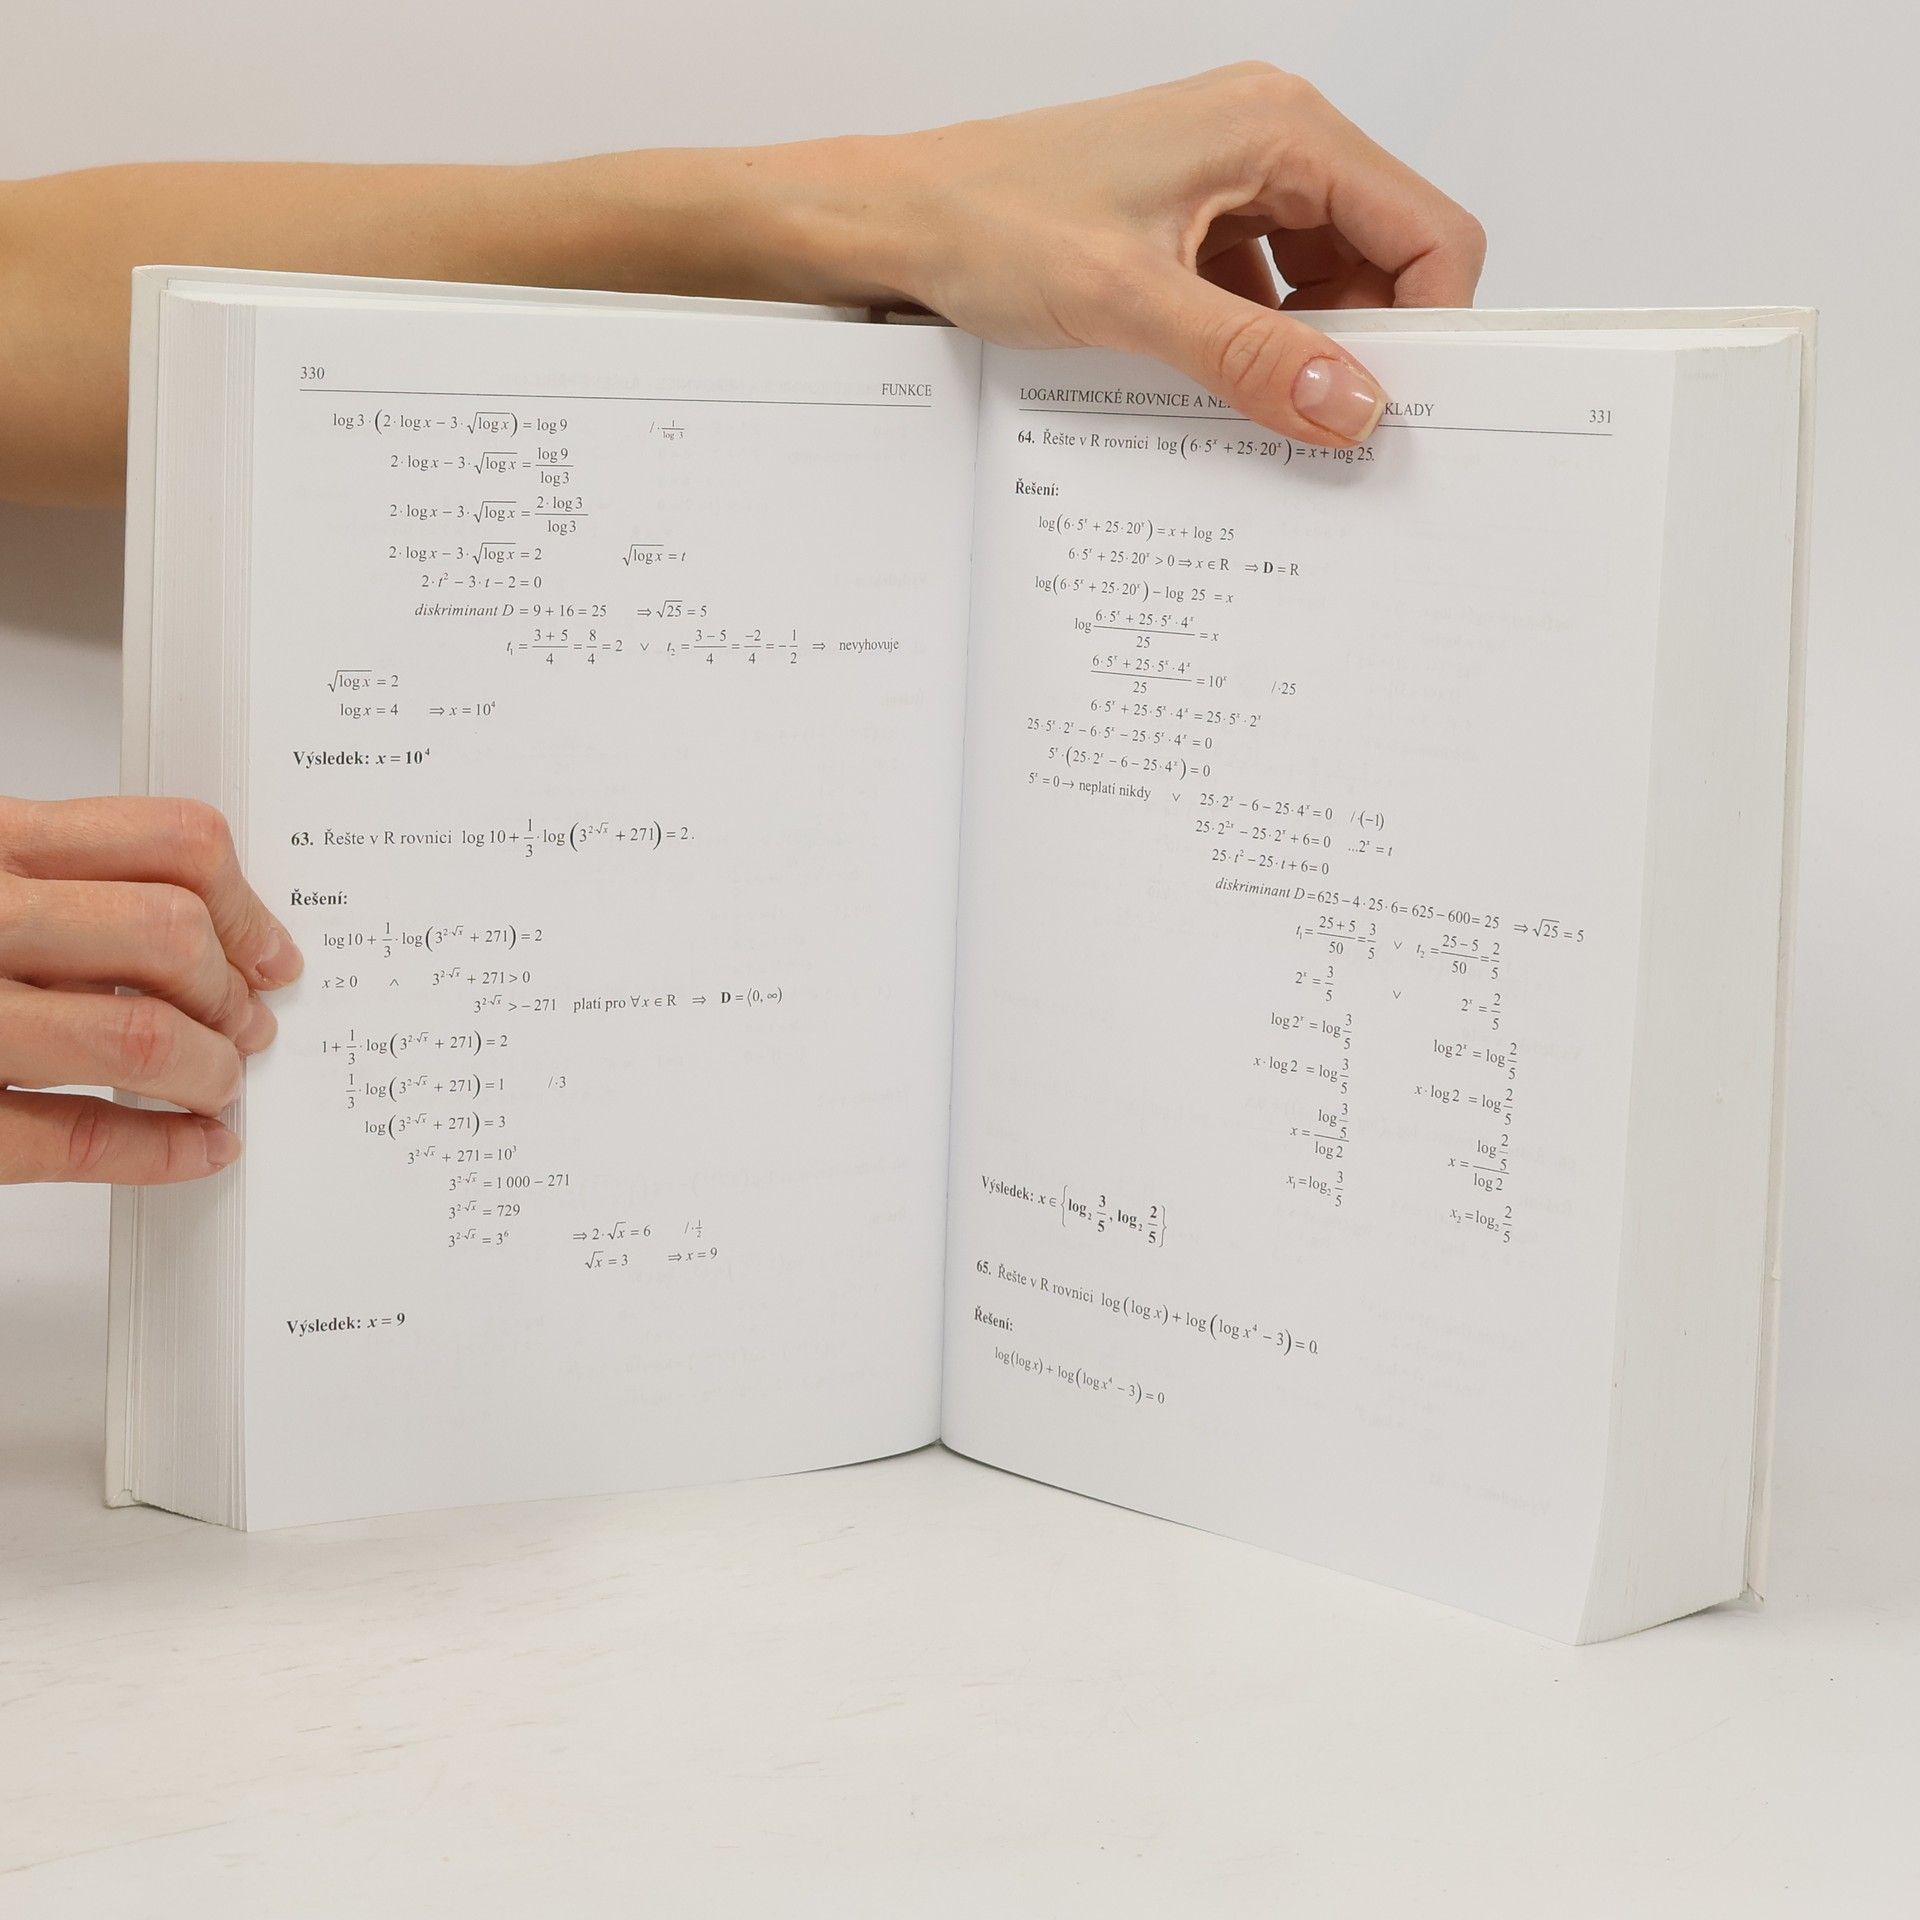 330
FUNKCE
log 3 · (2 · log x − 3 · √(log x)) = log 9 / · 1/log 3
2 · log x − 3 · √(log x) = log 9/log 3
2 · log x − 3 · √(log x) = 2 · log 3/log 3
2 · log x − 3 · √(log x) = 2 √(log x) = t
2 · t² − 3 · t − 2 = 0
diskriminant D = 9 + 16 = 25 ⇒ √25 = 5
t₁ = (3 + 5)/4 = 8/4 = 2 ∨ t₂ = (3 − 5)/4 = −2/4 = −1/2 ⇒ nevyhovuje
√(log x) = 2
log x = 4 ⇒ x = 10⁴
Výsledek: x = 10⁴
63. Řešte v R rovnici log 10 + 1/3 · log (3^(2·√x) + 271) = 2.
Řešení:
log 10 + 1/3 · log (3^(2·√x) + 271) = 2
x ≥ 0 ∧ 3^(2·√x) + 271 > 0
3^(2·√x) > − 271 platí pro ∀ x ∈ R ⇒ D = ⟨0, ∞)
1 + 1/3 · log (3^(2·√x) + 271) = 2
1/3 · log (3^(2·√x) + 271) = 1 / ·3
log (3^(2·√x) + 271) = 3
3^(2·√x) + 271 = 10³
3^(2·√x) = 1 000 − 271
3^(2·√x) = 729
3^(2·√x) = 3⁶ ⇒ 2 · √x = 6 / · 1/2
√x = 3 ⇒ x = 9
Výsledek: x = 9
LOGARITMICKÉ ROVNICE A NE KLADY 331
64. Řešte v R rovnici log (6 · 5ˣ + 25 · 20ˣ) = x + log 25.
Řešení:
log (6 · 5ˣ + 25 · 20ˣ) = x + log 25
6 · 5ˣ + 25 · 20ˣ > 0 ⇒ x ∈ R ⇒ D = R
log (6 · 5ˣ + 25 · 20ˣ) − log 25 = x
log (6 · 5ˣ + 25 · 5ˣ · 4ˣ)/25 = x
(6 · 5ˣ + 25 · 5ˣ · 4ˣ)/25 = 10ˣ / ·25
6 · 5ˣ + 25 · 5ˣ · 4ˣ = 25 · 5ˣ · 2ˣ
25 · 5ˣ · 2ˣ − 6 · 5ˣ − 25 · 5ˣ · 4ˣ = 0
5ˣ · (25 · 2ˣ − 6 − 25 · 4ˣ) = 0
5ˣ = 0 → neplatí nikdy ∨ 25 · 2ˣ − 6 − 25 · 4ˣ = 0 / ·(−1)
25 · 2²ˣ − 25 · 2ˣ + 6 = 0 ...2ˣ = t
25 · t² − 25 · t + 6 = 0
diskriminant D = 625 − 4 · 25 · 6 = 625 − 600 = 25 ⇒ √25 = 5
t₁ = (25 + 5)/50 = 3/5 ∨ t₂ = (25 − 5)/50 = 2/5
2ˣ = 3/5 ∨ 2ˣ = 2/5
log 2ˣ = log 3/5 log 2ˣ = log 2/5
x · log 2 = log 3/5 x · log 2 = log 2/5
x = (log 3/5)/log 2 x = (log 2/5)/log 2
x₁ = log₂ 3/5 x₂ = log₂ 2/5
Výsledek: x ∈ {log₂ 3/5, log₂ 2/5}
65. Řešte v R rovnici log (log x) + log (log x⁴ − 3) = 0.
Řešení:
log (log x) + log (log x⁴ − 3) = 0